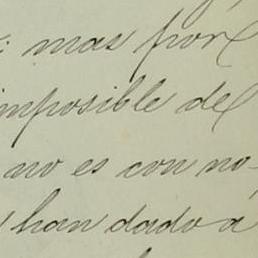 : mas por
imposible de
no es con no-
han dado a